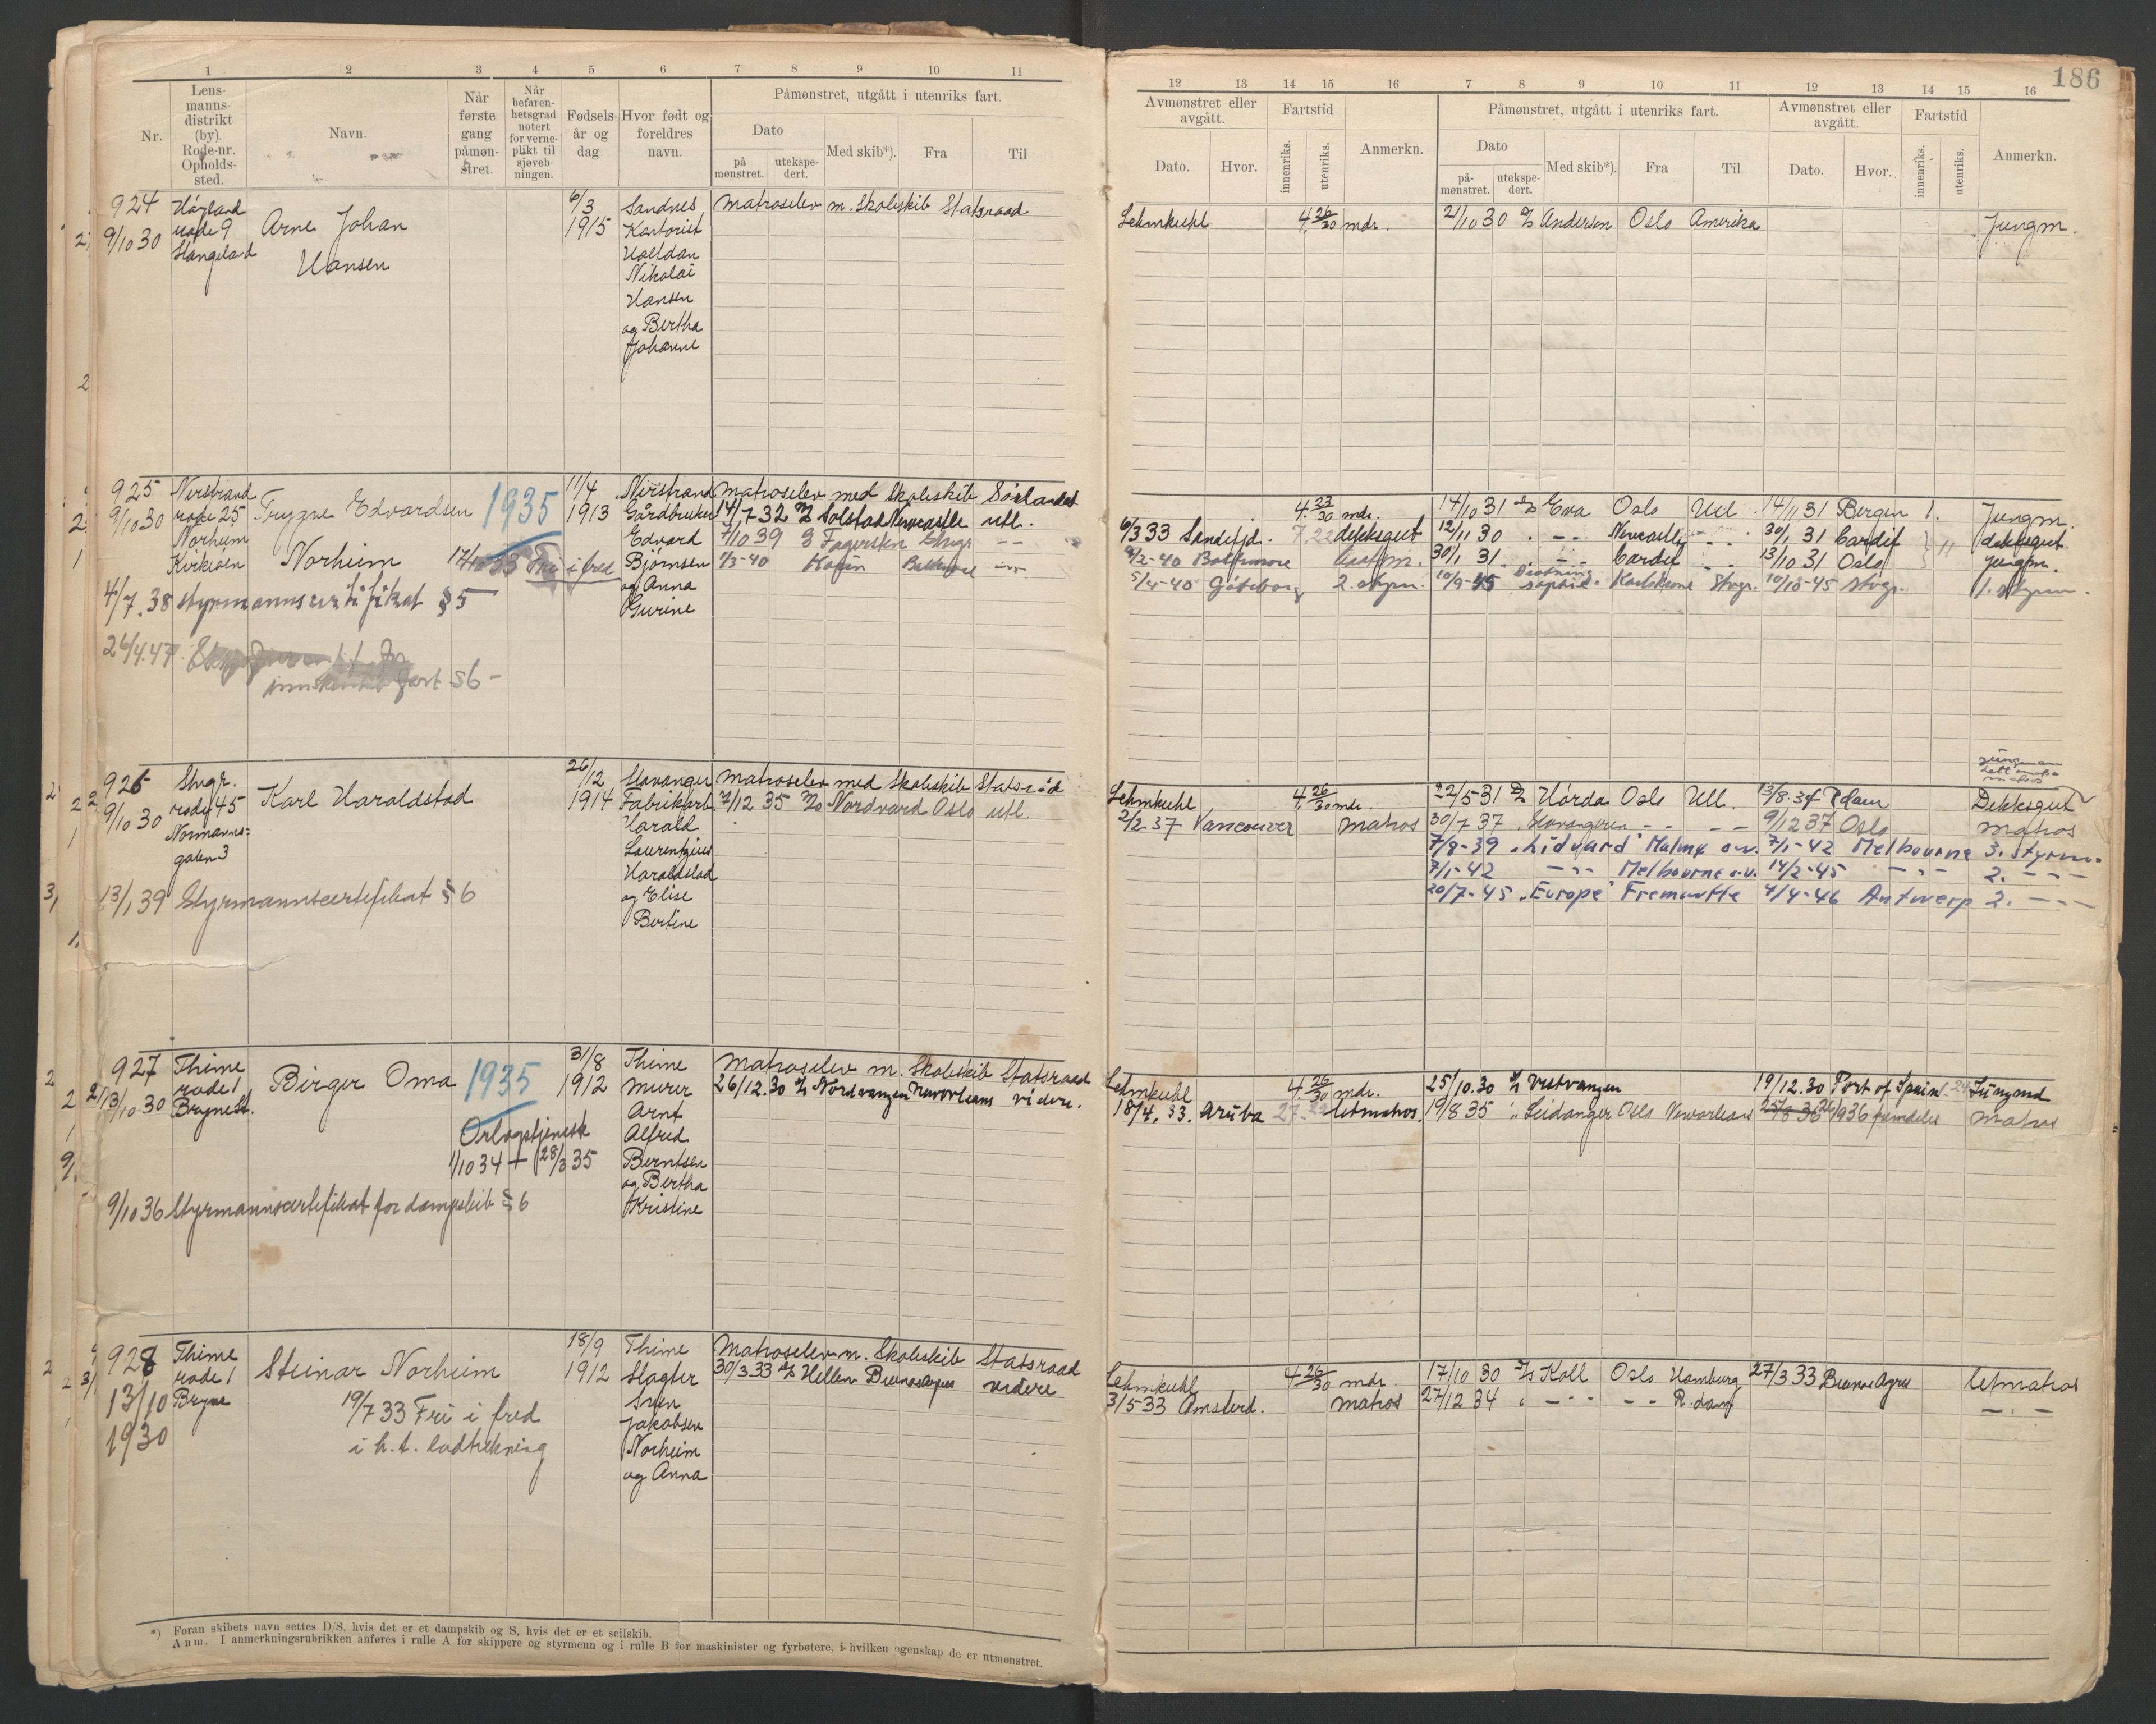 186
1 2 3 4 5 6 7 8 9 10 11
Nr.
Lens-
manns-
distrikt
(by).
Rode-nr.
Opholds-
sted.
Navn.
Når
første
gang
påmøn-
stret.
Når
befaren-
hetsgrad
notert
for verne-
plikt til
sjøveb-
ningen.
Fødsels-
år og
dag
Hvor født og
foreldres
navn.
Påmønstret, utgått i utenriks fart.
Dato
på
mønstret.
utekspe-
dert.
Med skib*).
Fra
Til
12 13 14 15 16 7 8 9 10 11 12 13 14 15 16
Avmønstret eller
avgått.
Dato.
Hvor.
Fartstid
innenriks.
utenriks.
Anmerkn.
Påmønstret, utgått i utenriks fart.
Dato
på-
mønstret.
utekspe-
dert.
Med skib*).
Fra
Til
Avmønstret eller
avgått.
Dato.
Hvor.
Fartstid
innenriks.
utenriks.
Anmerkn.
924
9/10 30
Håyland
rode 9
Stangeland
Arne Johan
Hansen
6/3
1915
Sandnes
Kontorist
Halfdan
Nikolai
Hansen
og Bertha
Johanne
Matroselev m. Skoleskib Statsraad
Lehmkuhl 4 26/30 mdr. 21/10 30 Andersen Oslo Amerika Jungm.
925
9/10 30
Nerstrand
rode 25
Norheim
Trygve Edvardsen
Norheim
1935
17/10 33 Fri i fred
4/7.38 styrmannscertifikat § 5
26/4.47
innskrenket fart § 6 -
11/4
1913
Nerstrand
Gårdbruker
Edvard
Bjørnsen
og Anna
Gurine
Matroselev med Skoleskib Sørlandet
14/7 32 Solstad Newcastle utl.
7/10 39 Fagersten Stvgr - -
1/3-40 Baltimore - -
4 23/30 mdr. 14/10 31 Eva Oslo Utl. 14/11 31 Bergen 1. Jungm.
6/3 33 Sandefjd. 7.22 dekksgut 12/11 30 . - - Newcastle - - 30/1 31 Cardif dekksgut
9/2-40 Baltimore 30/1 31 . - - Cardif - - 13/10 31 Oslo 11 jungm.
5/4-40 Gøteborg 2. styrm. 10/9-45 Karlskrone Stvgr. 10/10-45 Stvgr. 1. styrm.
926
9/10 30
Stvgr.
rode 45
Normanns-
gaten 3
Karl Haraldstad
13/1 39 Styrmannscertefikat § 6
26/12
1914
Stavanger
Fabrikarb
Harald
Laurentzius
Haraldstad
og Elise
Bertine
Matroselev med Skoleskib Statsråd
7/12 35 Nordvard Oslo utl.
Lehmkuhl 4. 26/30 mdr. 22/5 31 Hørda Oslo Utl. 13/8.34 Rdam Dekksgut
jungmann
2/2 37 Vancouver Matros 30/7 37 Stavangeren - - - - 9/12 37 Oslo Matros
7/8-39 "Lidvard" Malmø o.v. 7/1-42 Melbourne 3. styrm.
7/1-42 - " - Melbourne o.v. 14/2-45 - " - 2. - " -
20/7-45 "Europe" Fremantle 4/4-46 Antwerp 2. - " -
927
13/10 30
Thime
rode 1
Bryne St.
Birger Oma
1935
Orlogstjeneste
1/10 34 + 28/3 35
9/10 36 Styrmannscertefikat for dampskib § 6
31/8
1912
Thime
Murer
Arnt
Alfred
Berntsen
og Bertha
Kristine
Matroselev m. Skoleskib Statsraad
26/12.30 Nordvangen Neworleans videre.
Lehmkuhl 4. 26/30 mdr. 25/10.30 Vestvangen 19/12.30 Port of Spain 24 Jungmd
18/4.33. Aruba 27. Letmatros. 19/8 35 Leidanger Oslo Neworleans 25/8 36 26/9 36 fremdeles Matros
928
13/10
1930
Thime
rode 1
Bryne
Steinar Norheim
19/7 33 Fri i fred
i h. t. lodtrekning
18/9
1912
Thime
Slagter
Sven
Jakobsen
Norheim
og Anna
Matroselev m. Skoleskib Statsraad
30/3.33 Hellen Buenosayres videre
Lehmkuhl 4 26/30 mdr. 17/10 30 Koll Oslo Hamburg 27/3 33 Buenos Ayres letmatros
3/5-33 Amsterd. Matros 27/12 34 - - - - R.dam - . -
*) Foran skibets navn settes D/S, hvis det er et dampskib og S, hvis det er et seilskib.
Anm. I anmerkningsrubrikken anføres i rulle A for skippere og styrmenn og i rulle B for maskinister og fyrbøtere, i hvilken egenskap de er utmønstret.